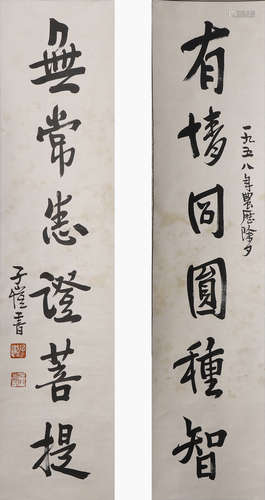 有情同圓種智
一九五八年農歷除夕
無常悉證菩提
子愷書